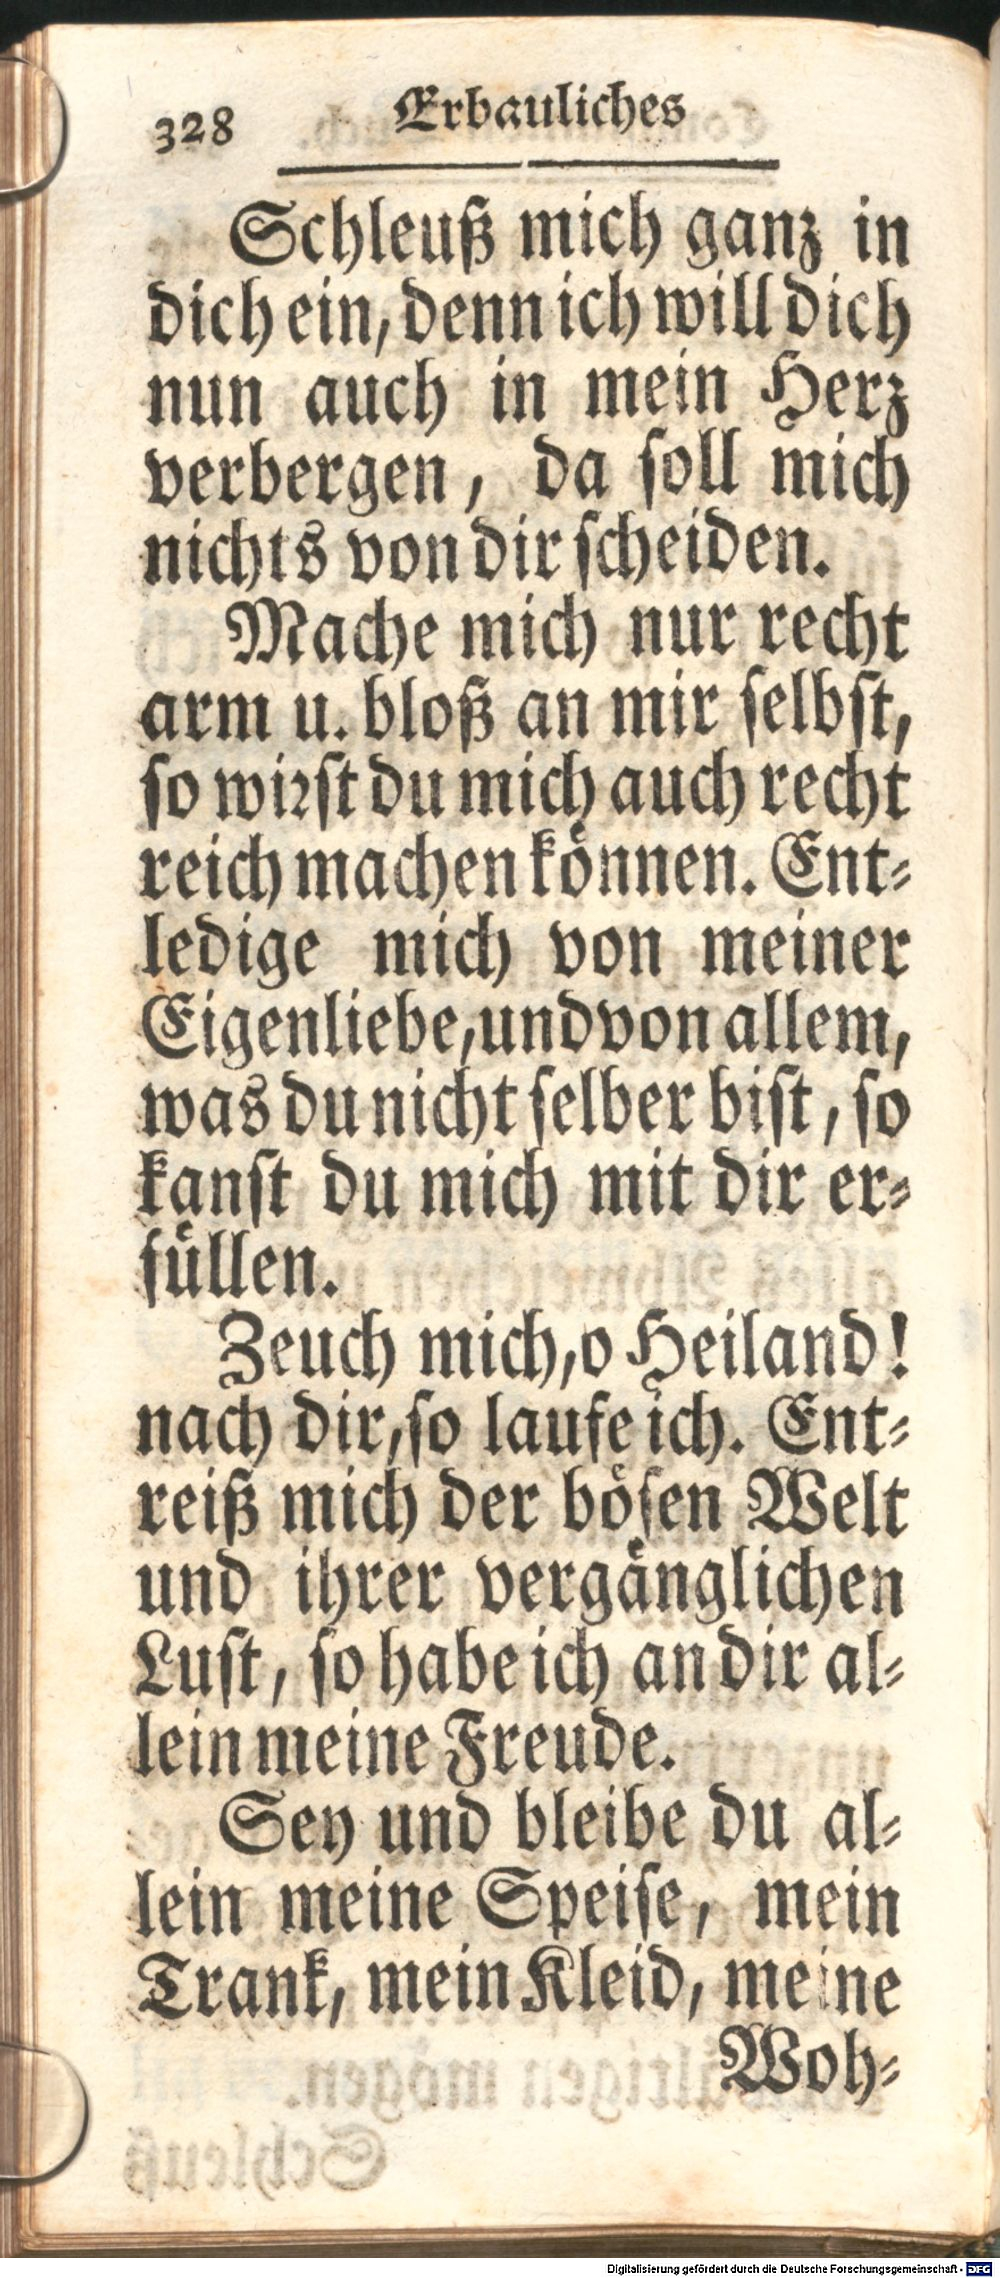 328 Erbauliches
Schleuß mich ganz in
dich ein, denn ich will dich
nun auch in mein Herz
verbergen, da soll mich
nichts von dir scheiden.
Mache mich nur recht
arm u. bloß an mir selbst,
so wirst du mich auch recht
reich machen können. Ent-
ledige mich von meiner
Eigenliebe, und von allem,
was du nicht selber bist, so
kanst du mich mit dir er-
füllen.
Zeuch mich, o Heiland!
nach dir, so laufe ich. Ent-
reiß mich der bösen Welt
und ihrer vergänglichen
Lust, so habe ich an dir al-
lein meine Freude.
Sey und bleibe du al-
lein meine Speise, mein
Trank, mein Kleid, meine
Woh-
Digitalisierung gefördert durch die Deutsche Forschungsgemeinschaft - DFG